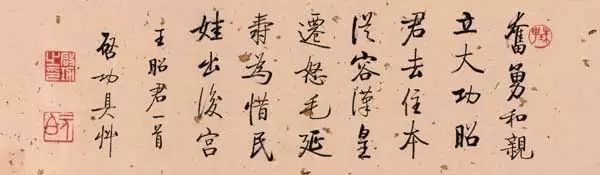 奮勇和親
立大功昭
君去住本
從容漢皇
遷怒毛延
壽為惜民
娃出後宮
王昭君一首
啟功具艸